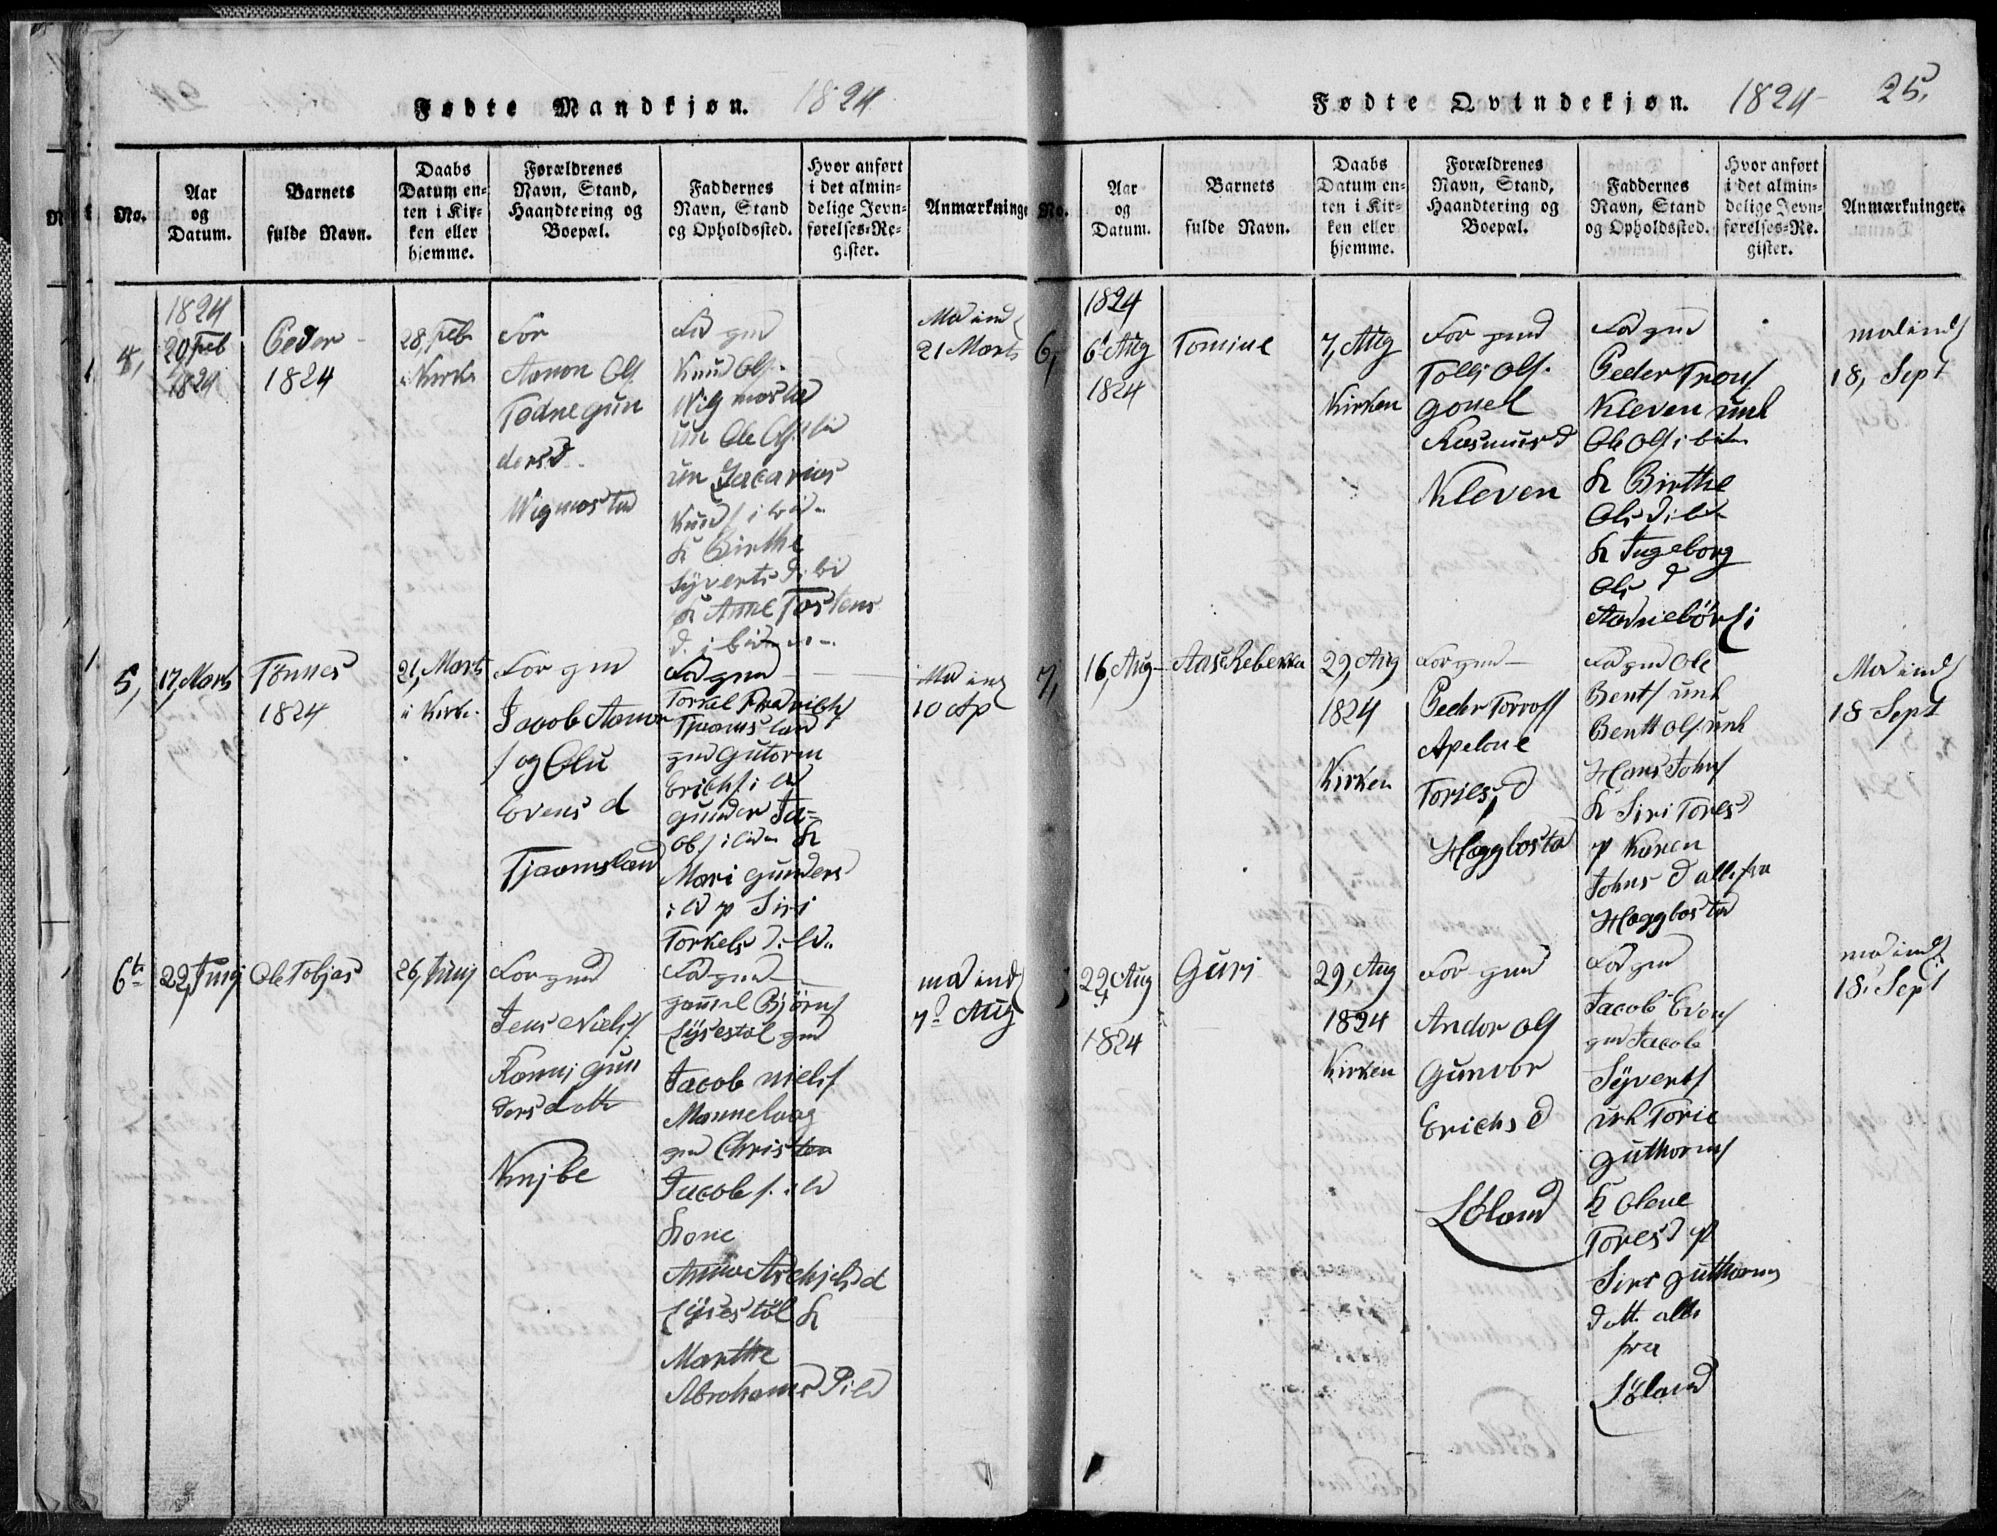 Fødte Mandkjøn. 1824
No.
Aar
og
Datum.
Barnets
fulde Navn.
Daabs
Datum en-
ten i Kir-
ken eller
hjemme.
Forældrenes
Navn, Stand,
Haandtering og
Boepæl.
Faddernes
Navn, Stand
og Opholdssted.
Hvor anført
i det almin-
delige Jevn-
førelses-Re-
gister.
Anmærkninge
4,
1824
20, Feb
1824
Peder
1824
28, Feb
i Kirke
For
Aanon Ols
Todne gun
dersd.
Wigmostad
Fad gmd
Knud Ols.
Wigmostad
un Ole Ols ibid
un Zacarias
Knuds ibid
K Birthe
Syverts d. ibid
Anne Tostens
d. ibid
Mod ind
21 Marts
5,
17, Marts
Tönnes
1824
21, Marts
i Kirke
For gmd
Jacob Aanon
s og Olu
Evens d
Tjaamsland
Fad gmd
Torkel
Tjaamsland
gmd Gutorm
Erichs ibid
gunder Ja-
obs ibid K
Mari gunders
ibid p Siri
Torkels d. ibid
Mod ind
10 Ap
6te
22, Junj
Ole Tobjas
26, Junj
For gmd
Jens Niels
gun
ders datt
Knjbe
Fad gmd
gamel Björns
Lysestöl gmd
Jacob niels
Mannelaag
gmd Christen
Jacobs. ibid
Kone
Anne Aschjels d
Lysestöl K
Marthe
Abrahams d ibid
mod ind
7de Aug
Fødte Qvindekjøn. 1824 25,
No.
Aar
og
Datum.
Barnets
fulde Navn.
Daabs
Datum en-
ten i Kir-
ken eller
hjemme.
Forældrenes
Navn, Stand,
Haandtering og
Boepæl.
Faddernes
Navn, Stand
og Opholdssted.
Hvor anført
i det almin-
delige Jevn-
førelses-Re-
gister.
Anmærkninger.
6,
1824
6, Aug
1824
Tomine
7, Aug
Kirken
For gmd
Tolli Ols.
gonel
Rasmus d
Kleven
Fad gmd
Peder Trons
Kleven unk
Ole Ols ibid
K Birthe
Ols d ibid
K Ingeborg
Ols d
mod ind
18, Sept
7,
16, Aug
Aase Rebekka
29, Aug
1824
Kirken
For gmd
Peder Torvols
Apelone
Torjes d
Hæggbostad
Fad gmd Ole
Bents unk
Bentt Ols unk
Hans Johns
K Siri Tores d
p Karen
Johns d alle fra
Hæggbostad
Mod ind
18 Sept
22, Aug
1824
Guri
29, Aug
1824
Kirken
For gmd
Andor Ols
Gunvor
Erichs d
Löland
Fad gmd
Jacob Evens
gmd Jacob
Syverts
unk Torie
guthorms
K Olene
Tores d p
Siri guthorms
datt alle
fra
Löland
mod ind
18, Sept